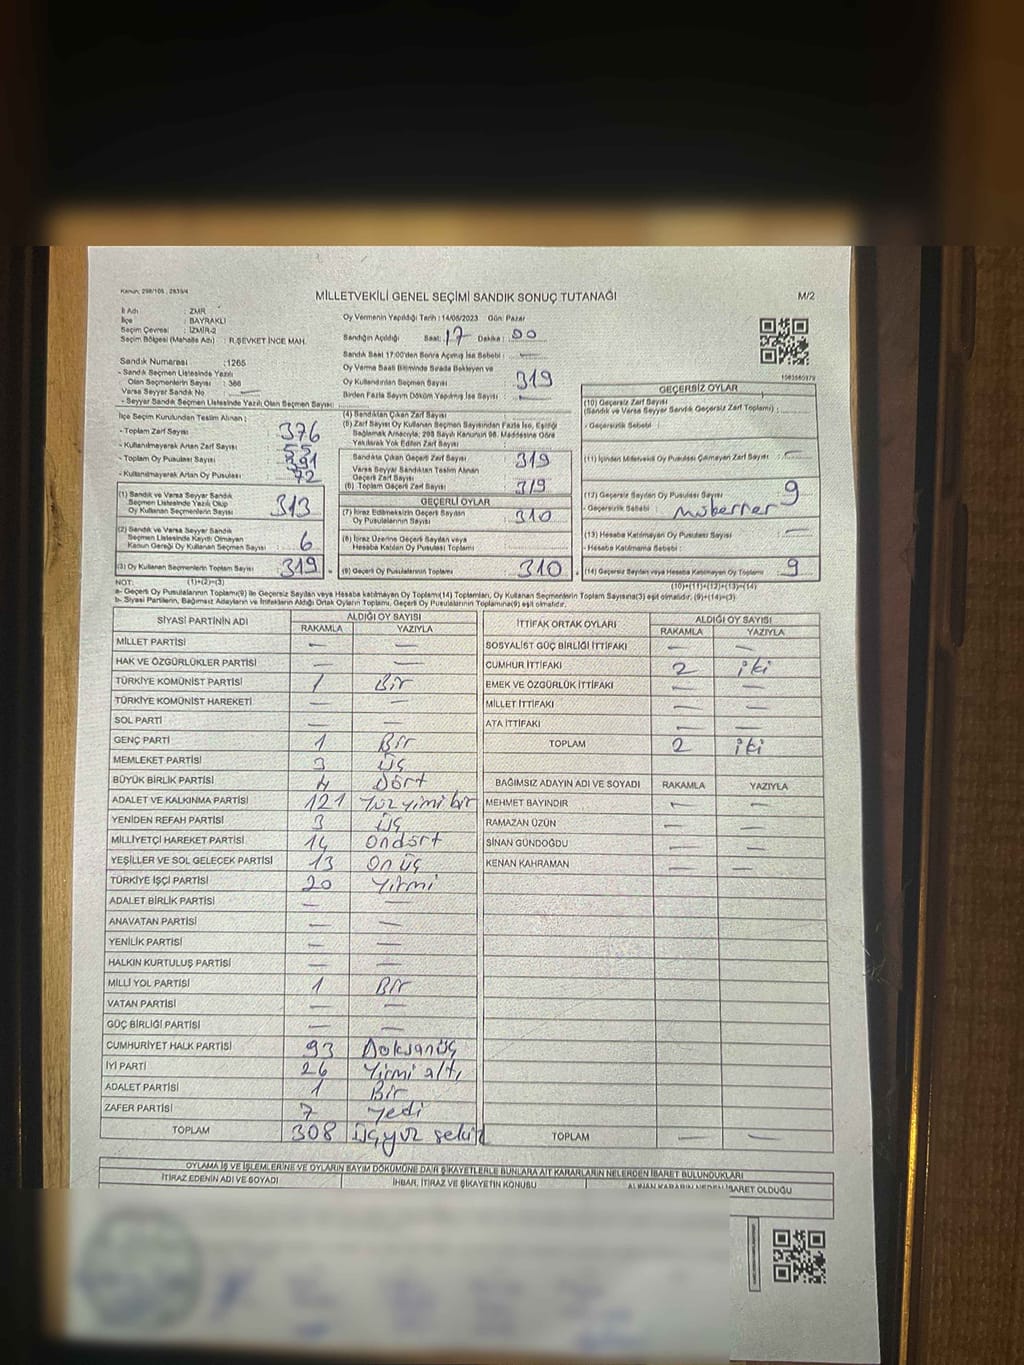 Kanun: 298/105 , 2839/4
MİLLETVEKİLİ GENEL SEÇİMİ SANDIK SONUÇ TUTANAĞI
M/2
İl Adı : ZMR
İlçe : BAYRAKLI
Seçim Çevresi : İZMİR-2
Seçim Bölgesi (Mahalle Adı) : R.ŞEVKET İNCE MAH.
Sandık Numarası :1265
- Sandık Seçmen Listesinde Yazılı
Olan Seçmenlerin Sayısı : 366
Varsa Seyyar Sandık No : —
- Seyyar Sandık Seçmen Listesinde Yazılı Olan Seçmen Sayısı :
İlçe Seçim Kurulundan Teslim Alınan :
- Toplam Zarf Sayısı : 376
- Kullanılmayarak Artan Zarf Sayısı
- Toplam Oy Pusulası Sayısı : 391
- Kullanılmayarak Artan Oy Pusulası : 72
(1) Sandık ve Varsa Seyyar Sandık
Seçmen Listesinde Yazılı Olup
Oy Kullanan Seçmenlerin Sayısı : 313
(2) Sandık ve Varsa Seyyar Sandık
Seçmen Listesinde Kaydı Olmayan
Kanun Gereği Oy Kullanan Seçmen Sayısı : 6
(3) Oy Kullanan Seçmenlerin Toplam Sayısı : 319
Oy Vermenin Yapıldığı Tarih :14/05/2023 Gün: Pazar
Sandığın Açıldığı Saat: 17 Dakika : 00
Sandık Saat 17:00'den Sonra Açılmış İse Sebebi : —
Oy Verme Saati Bitiminde Sırada Bekleyen ve
Oy Kullandırılan Seçmen Sayısı : 319
Birden Fazla Sayım Döküm Yapılmış İse Sayısı : —
(4) Sandıktan Çıkan Zarf Sayısı :
(5) Zarf Sayısı Oy Kullanan Seçmen Sayısından Fazla İse, Eşitliği
Sağlamak Amacıyla, 298 Sayılı Kanunun 98. Maddesine Göre
Yakılarak Yok Edilen Zarf Sayısı :
Sandıkta Çıkan Geçerli Zarf Sayısı : 319
Varsa Seyyar Sandıktan Teslim Alınan
Geçerli Zarf Sayısı :
(6) Toplam Geçerli Zarf Sayısı : 319
GEÇERLİ OYLAR
(7) İtiraz Edilmeksizin Geçerli Sayılan
Oy Pusulalarının Sayısı : 310
(8) İtiraz Üzerine Geçerli Sayılan veya
Hesaba Katılan Oy Pusulası Toplamı :
(9) Geçerli Oy Pusulalarının Toplamı : 310
GEÇERSİZ OYLAR
(10) Geçersiz Zarf Sayısı
(Sandık ve Varsa Seyyar Sandık Geçersiz Zarf Toplamı) :
- Geçersizlik Sebebi :
(11) İçinden Milletvekili Oy Pusulası Çıkmayan Zarf Sayısı : —
(12) Geçersiz Sayılan Oy Pusulası Sayısı : 9
- Geçersizlik Sebebi :
(13) Hesaba Katılmayan Oy Pusulası Sayısı : —
- Hesaba Katılmama Sebebi :
(14) Geçersiz Sayılan veya Hesaba Katılmayan Oy Toplamı : 9
NOT: (1)+(2)=(3)
(10)+(11)+(12)+(13)=(14)
a- Geçerli Oy Pusulalarının Toplamı(9) ile Geçersiz Sayılan veya Hesaba Katılmayan Oy Toplamı(14) Toplamları, Oy Kullanan Seçmenlerin Toplam Sayısına(3) eşit olmalıdır. (9)+(14)=(3).
b- Siyasi Partilerin, Bağımsız Adayların ve İttifakların Aldığı Ortak Oyların Toplamı, Geçerli Oy Pusulalarının Toplamına(9) eşit olmalıdır.
SİYASİ PARTİNİN ADI ALDIĞI OY SAYISI
RAKAMLA YAZIYLA
MİLLET PARTİSİ — —
HAK VE ÖZGÜRLÜKLER PARTİSİ — —
TÜRKİYE KOMÜNİST PARTİSİ 1 Bir
TÜRKİYE KOMÜNİST HAREKETİ — —
SOL PARTİ — —
GENÇ PARTİ 1 Bir
MEMLEKET PARTİSİ 3 Üç
BÜYÜK BİRLİK PARTİSİ 4 Dört
ADALET VE KALKINMA PARTİSİ 121 Yüzyimi bir
YENİDEN REFAH PARTİSİ 3 üç
MİLLİYETÇİ HAREKET PARTİSİ 14 ondört
YEŞİLLER VE SOL GELECEK PARTİSİ 13 on üç
TÜRKİYE İŞÇİ PARTİSİ 20 Yirmi
ADALET BİRLİK PARTİSİ — —
ANAVATAN PARTİSİ — —
YENİLİK PARTİSİ — —
HALKIN KURTULUŞ PARTİSİ — —
MİLLİ YOL PARTİSİ 1 Bir
VATAN PARTİSİ — —
GÜÇ BİRLİĞİ PARTİSİ — —
CUMHURİYET HALK PARTİSİ 93 Doksanüç
İYİ PARTİ 26 Yirmi altı
ADALET PARTİSİ 1 Bir
ZAFER PARTİSİ 7 Yedi
TOPLAM 308 üçyüz sekiz
İTTİFAK ORTAK OYLARI ALDIĞI OY SAYISI
RAKAMLA YAZIYLA
SOSYALİST GÜÇ BİRLİĞİ İTTİFAKI — —
CUMHUR İTTİFAKI 2 iki
EMEK VE ÖZGÜRLÜK İTTİFAKI — —
MİLLET İTTİFAKI — —
ATA İTTİFAKI — —
TOPLAM 2 iki
BAĞIMSIZ ADAYIN ADI VE SOYADI RAKAMLA YAZIYLA
MEHMET BAYINDIR — —
RAMAZAN ÜZÜN — —
SİNAN GÜNDOĞDU — —
KENAN KAHRAMAN — —
TOPLAM — —
OYLAMA İŞ VE İŞLEMLERİNE VE OYLARIN SAYIM DÖKÜMÜNE DAİR ŞİKAYETLERLE BUNLARA AİT KARARLARIN NELERDEN İBARET BULUNDUKLARI
İTİRAZ EDENİN ADI VE SOYADI İHBAR, İTİRAZ VE ŞİKAYETİN KONUSU ALINAN KARARIN NEDEN İBARET OLDUĞU